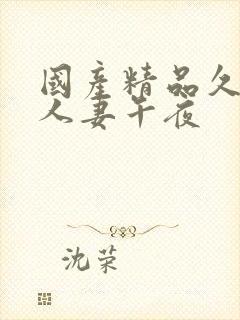 國產精品久
人妻午夜
沈荣